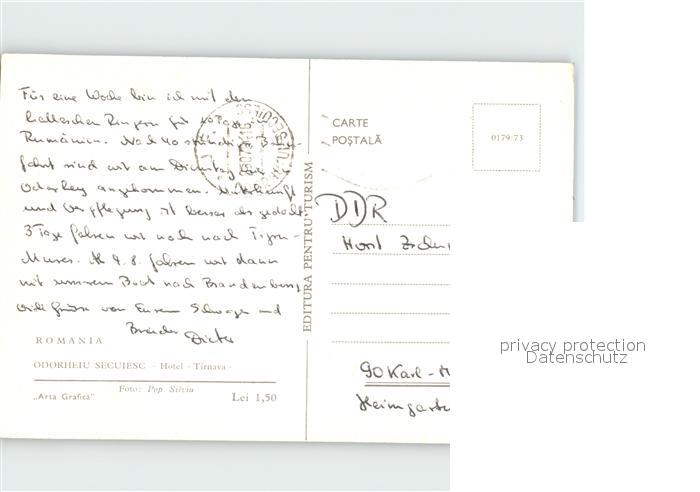 Für eine Woche bin ich mit den
halleschen Ringern für 10 Tage in
Rumänien. Nach 40 stündiger Bahn-
fahrt sind wir am Dienstag in
Odorhey angekommen. Unterkunft
und Verpflegung ist besser als gedacht
3 Tage fahren wir noch nach Tirgu-
Mures. Ab 4.8. fahren wir dann
mit unserem Boot nach Brandenburg
Viele Grüße von Eurem Schwager und
Bruder Dieter
ROMANIA
ODORHEIU SECUIESC — Hotel - Tîrnava -
Foto: Pop Silviu
„Arta Grafică"
Lei 1,50
EDITURA PENTRU TURISM
CARTE
POȘTALĂ
0179/73
DDR
Horst
90 Karl-M
Heimgarte
privacy protection
Datenschutz